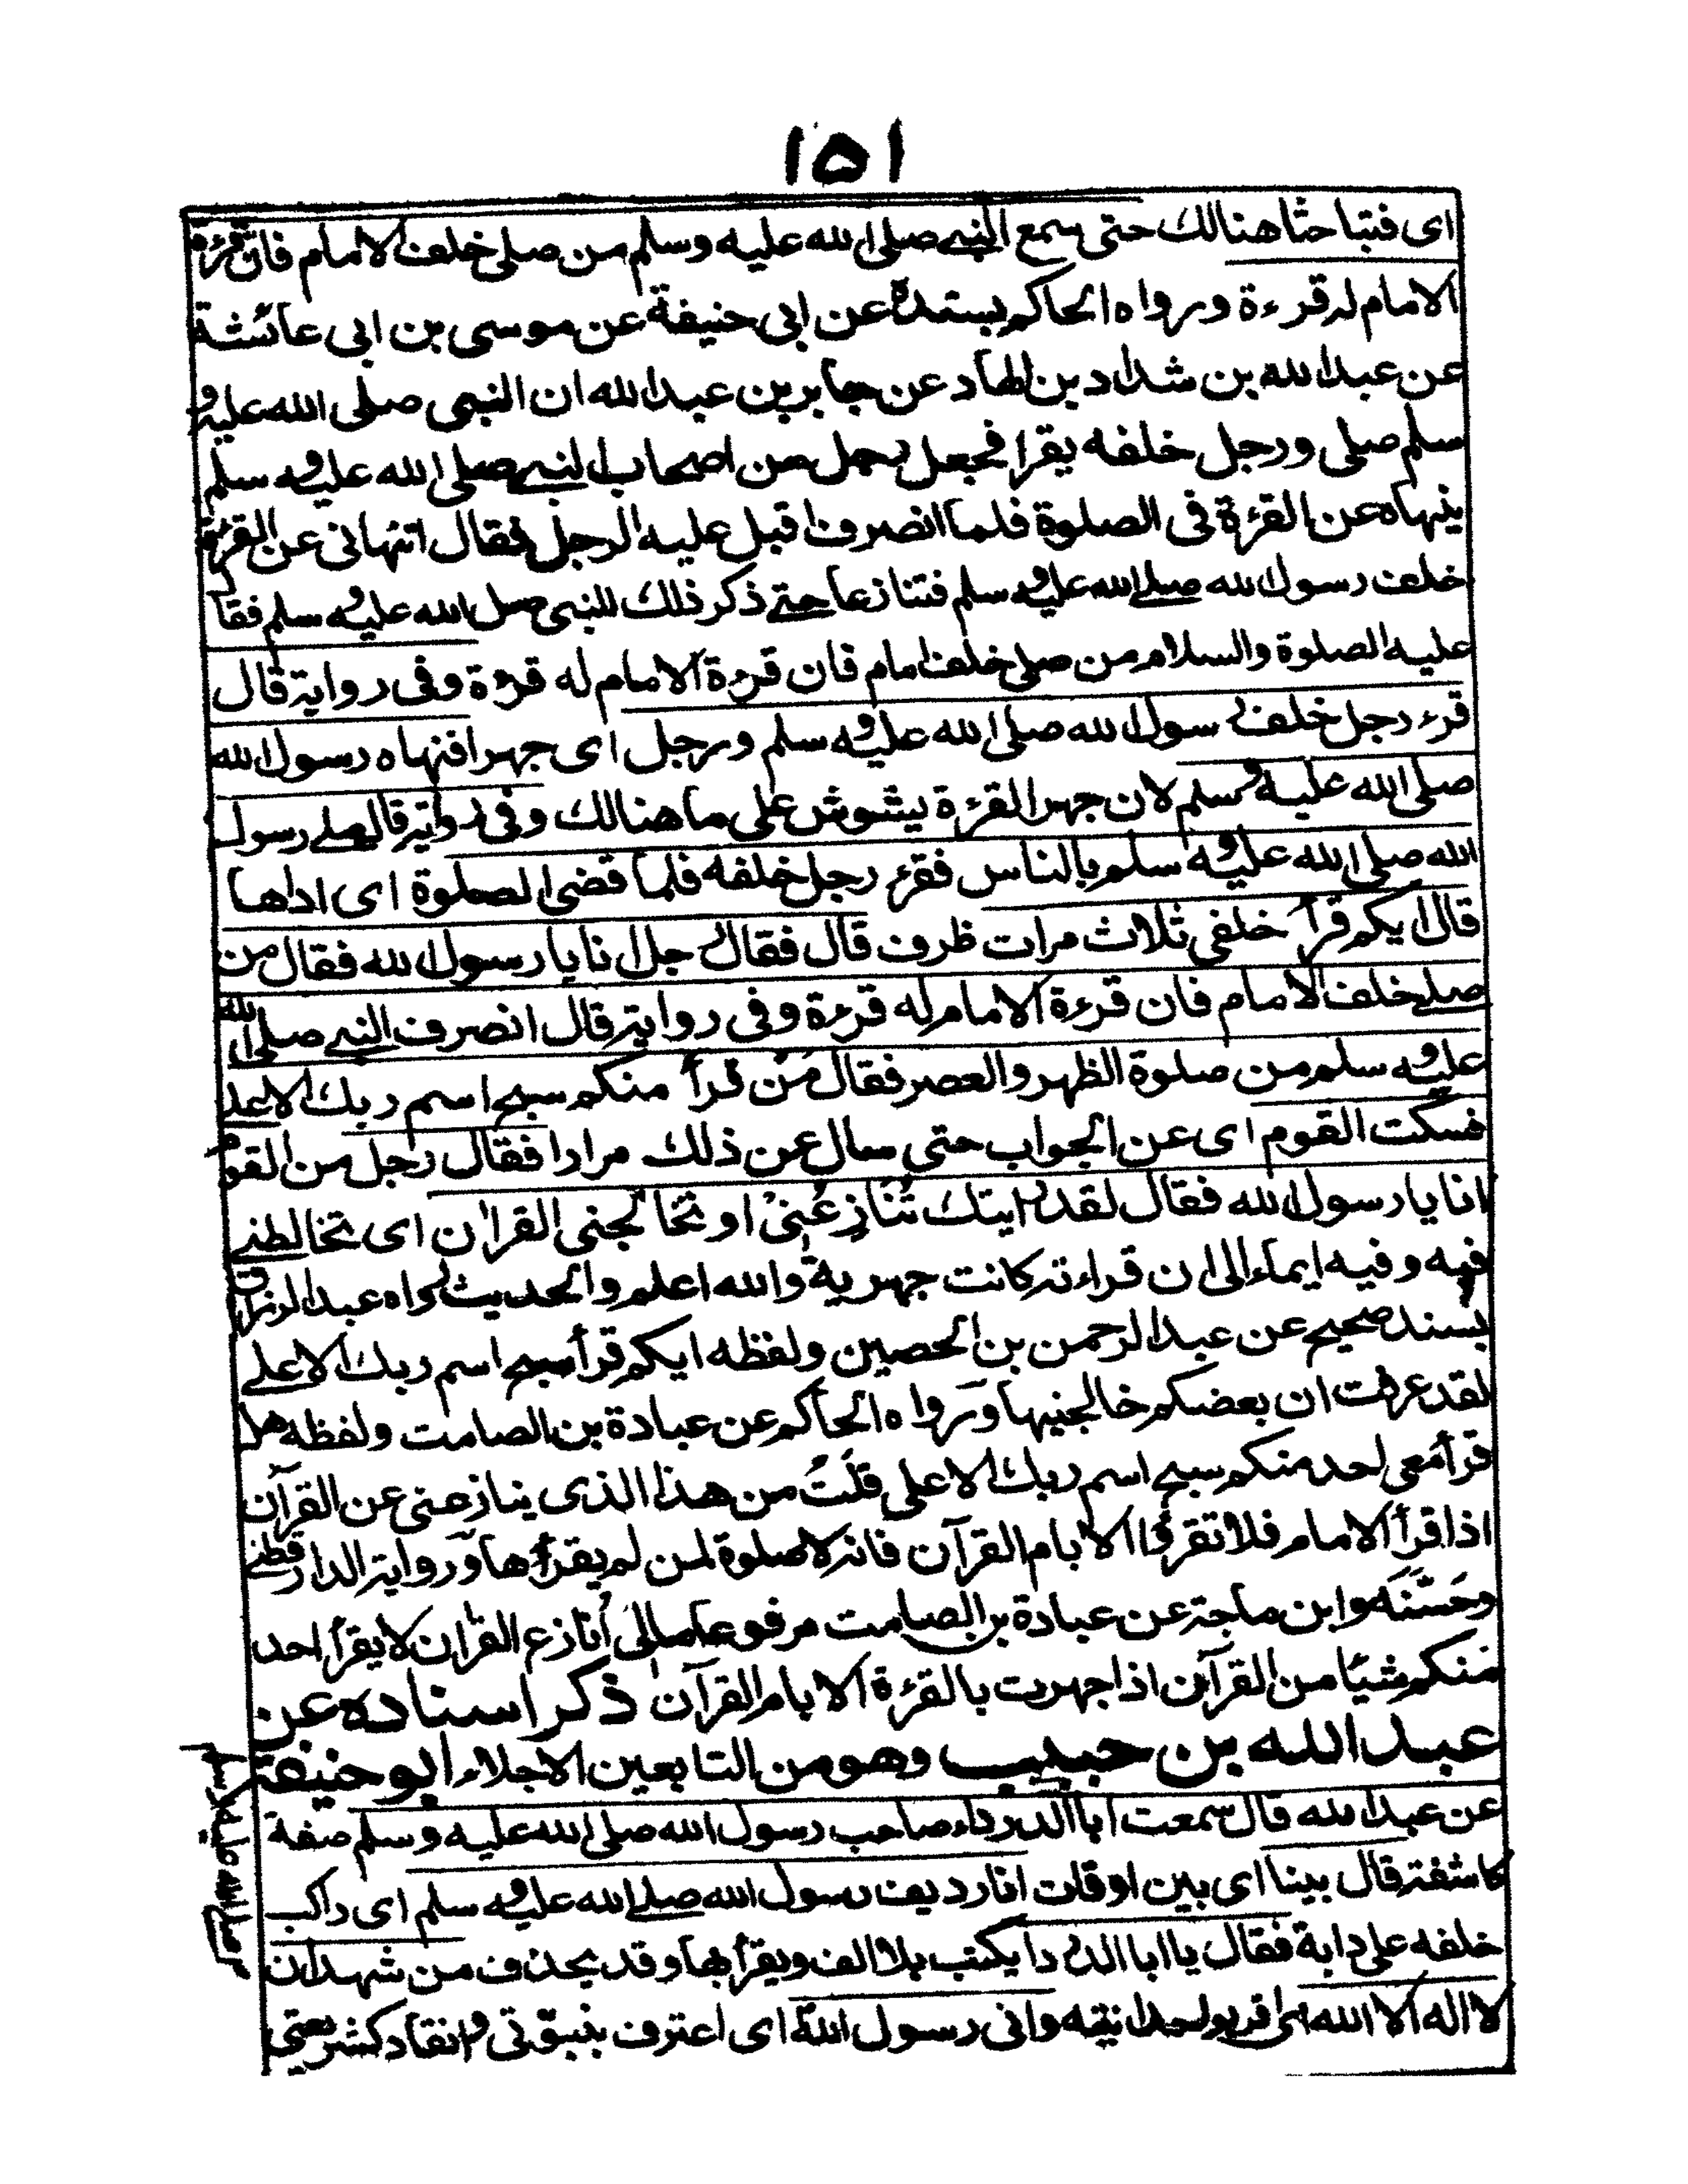 ١٥١
اى فتباحثا هنالك حتى سمع النبى صلى الله عليه وسلم من صلى خلف الامام فان قرءة
الامام له قرءة ورواه الحاكم بسنده عن ابى حنيفة عن موسى بن ابى عائشة
عن عبد الله بن شداد بن الهاد عن جابر بن عبد الله ان النبى صلى الله عليه و
سلم صلى ورجل خلفه يقرا فجعل رجل من اصحاب النبى صلى الله عليه و سلم
ينهاه عن القرءة فى الصلوة فلما انصرف اقبل عليه الرجل فقال اتنهانى عن القرءة
خلف رسول الله صلى الله عليه و سلم فتنازعا حتى ذكر ذلك للنبى صلى الله عليه و سلم فقال
عليه الصلوة والسلام من صلى خلف امام فان قرءة الامام له قرءة وفى رواية قال
قرء رجل خلف رسول الله صلى الله عليه و سلم ورجل اى جهرا فنهاه رسول الله
صلى الله عليه و سلم لان جهر القرءة يشوش على ما هنالك وفى رواية قال صلى رسول
الله صلى الله عليه و سلم بالناس فقرء رجل خلفه فلما قضى الصلوة اى اداها
قال ايكم قرأ خلفى ثلاث مرات ظرف قال فقال رجل انا يا رسول الله فقال من
صلى خلف الامام فان قرءة الامام له قرءة وفى رواية قال انصرف النبى صلى الله
عليه و سلم من صلوة الظهر والعصر فقال مَنْ قرأ منكم سبح اسم ربك الاعلى
فسكت القوم اى عن الجواب حتى سال عن ذلك مرارا فقال رجل من القوم
انا يا رسول الله فقال لقد رايتك تُنَازِعُنِىْ او تخالجنى القرآن اى تخالطنى
فيه وفيه ايماء الى ان قراءته كانت جهرية والله اعلم والحديث رواه عبد الرزاق
بسند صحيح عن عبد الرحمن بن الحصين ولفظه ايكم قرأ سبح اسم ربك الاعلى
لقد عرفت ان بعضكم خالجنيها ورواه الحاكم عن عبادة بن الصامت ولفظه هل
قرأ معى احد منكم سبح اسم ربك الاعلى قلتُ من هذا الذى ينازعنى عن القرآن
اذا قرأ الامام فلا تقرؤا الا بام القرآن فانه لا صلوة لمن لم يقرأ بها ورواية الدارقطنى
وحَسَّنَه وابن ماجة عن عبادة بن الصامت مرفوعا مالى أنازع القرآن لا يقرأ احد
منكم شيئا من القرآن اذا جهرت بالقرءة الا بام القرآن ذكر اسناده عن
عبد الله بن حبيب وهو من التابعين الاجلاء ابو حنيفة
عن عبد الله قال سمعت ابا الدرداء صاحب رسول الله صلى الله عليه وسلم صفة
كاشفة قال بينا اى بين اوقات انا رديف رسول الله صلى الله عليه و سلم اى راكب
خلفه على دابة فقال يا ابا الدرداء يكتب بلا الف ويقرأ بها وقد يحذف من شهد ان
لا اله الا الله اى اقر بوحدانيته وانى رسول الله اى اعترف بنبوتى وانقاد لشريعتى
صلى الله عليه وسلم